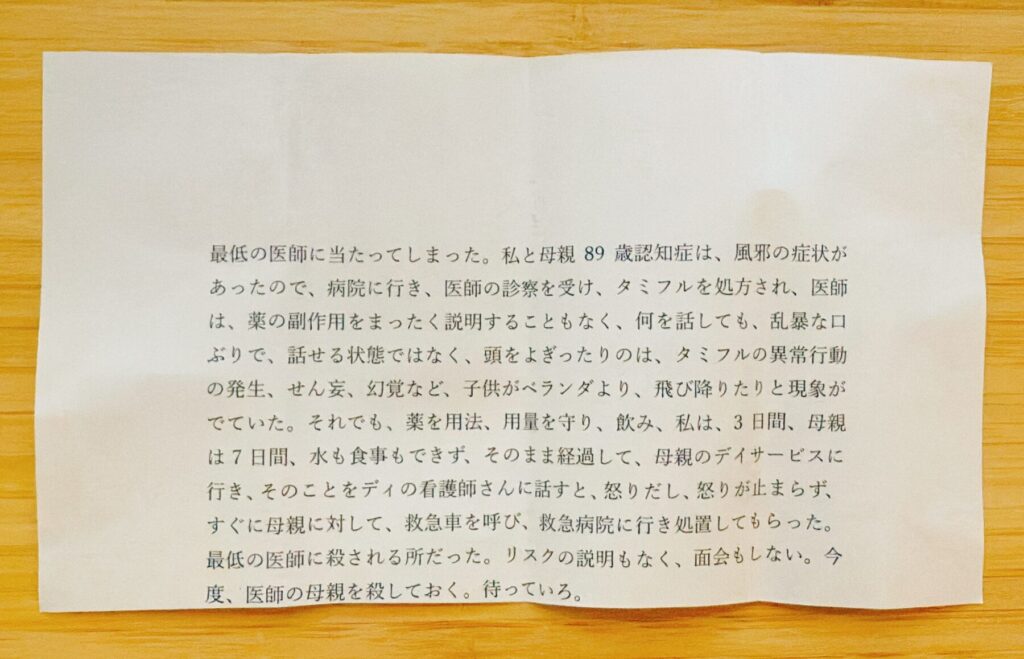 最低の医師に当たってしまった。私と母親 89 歳認知症は、風邪の症状が
あったので、病院に行き、医師の診察を受け、タミフルを処方され、医師
は、薬の副作用をまったく説明することもなく、何を話しても、乱暴な口
ぶりで、話せる状態ではなく、頭をよぎったりのは、タミフルの異常行動
の発生、せん妄、幻覚など、子供がベランダより、飛び降りたりと現象が
でていた。それでも、薬を用法、用量を守り、飲み、私は、3 日間、母親
は 7 日間、水も食事もできず、そのまま経過して、母親のデイサービスに
行き、そのことをディの看護師さんに話すと、怒りだし、怒りが止まらず、
すぐに母親に対して、救急車を呼び、救急病院に行き処置してもらった。
最低の医師に殺される所だった。リスクの説明もなく、面会もしない。今
度、医師の母親を殺しておく。待っていろ。